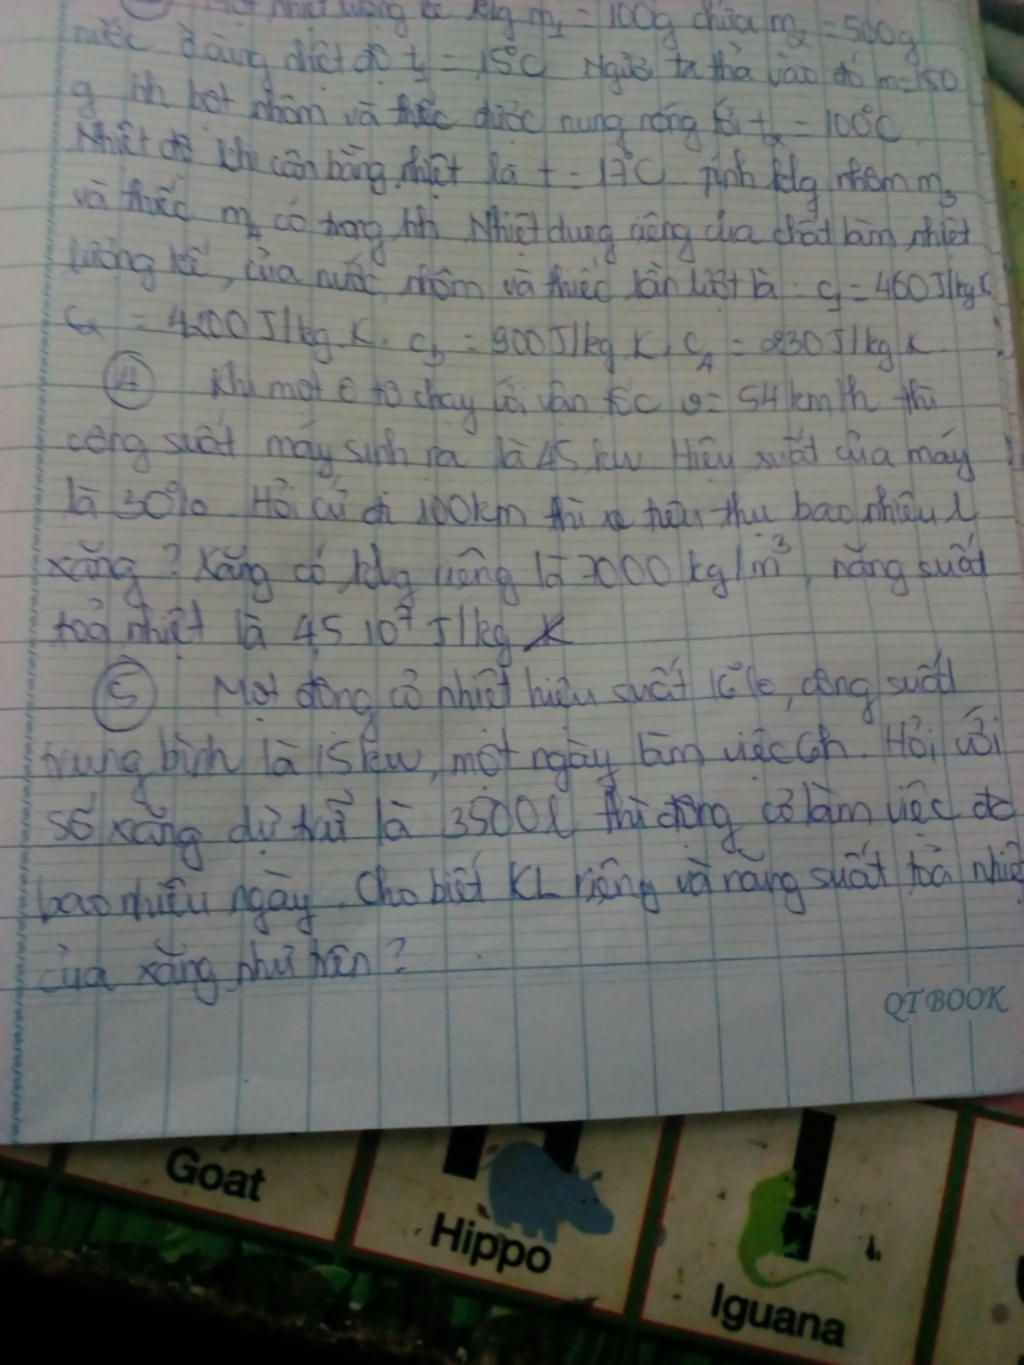 Một nhiệt lượng kế klg m₁ = 100g chứa m₂ = 500g
nước ở cùng nhiệt độ t₁ = 15°C Người ta thả vào đó m = 150
g hh bột nhôm và thiếc được nung nóng tới t₂ = 100°C
Nhiệt độ khi cân bằng nhiệt là t = 17°C Tính klg nhôm m₃
và thiếc m₄ có trong hh Nhiệt dung riêng của chất làm nhiệt
lượng kế, của nước, nhôm và thiếc lần lượt là: c₁ = 460J/kg K
c₂ = 4200J/kg K. c₃ = 900J/kg K, c₄ = 230J/kg K
④ Khi một ô tô chạy với vận tốc v = 54km/h thì
công suất máy sinh ra là 45 kw Hiệu suất của máy
là 30% Hỏi cứ đi 100km thì xe tiêu thụ bao nhiêu l
xăng? Xăng có klg riêng là 7000kg/m³, năng suất
toả nhiệt là 45 10⁷ J/kg
⑤ Một động cơ nhiệt hiệu suất 16%, công suất
trung bình là 15kw, một ngày làm việc 6h. Hỏi với
số xăng dự trữ là 3500l thì động cơ làm việc đc
bao nhiêu ngày. Cho biết KL riêng và năng suất toả nhiệt
của xăng như trên?
QTBOOK
Goat
Hippo
Iguana